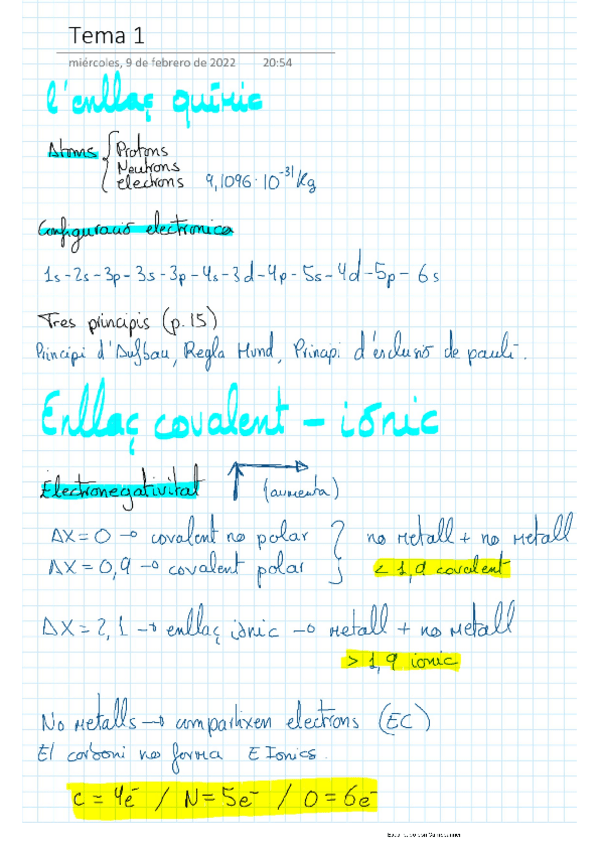 Tema 1
miércoles, 9 de febrero de 2022 20:54
l'enllaç químic
Atoms { Protons
Neutrons
electrons 9,1096·10⁻³¹ Kg
Configuració electronica
1s-2s-3p-3s-3p-4s-3d-4p-5s-4d-5p-6s
Tres principis (p.15)
Principi d'Aufbau, Regla Hund, Principi d'esclusió de pauli.
Enllaç covalent - iònic
Electronegativitat (aumenta)
ΔX=0 → covalent no polar } no metall + no metall
ΔX=0,9 → covalent polar < 1,9 covalent
ΔX=2,1 → enllaç iònic → metall + no metall
> 1,9 ionic
No metalls → compartixen electrons (EC)
El carboni no forma E Ionics.
C = 4e⁻ / N = 5e⁻ / O = 6e⁻